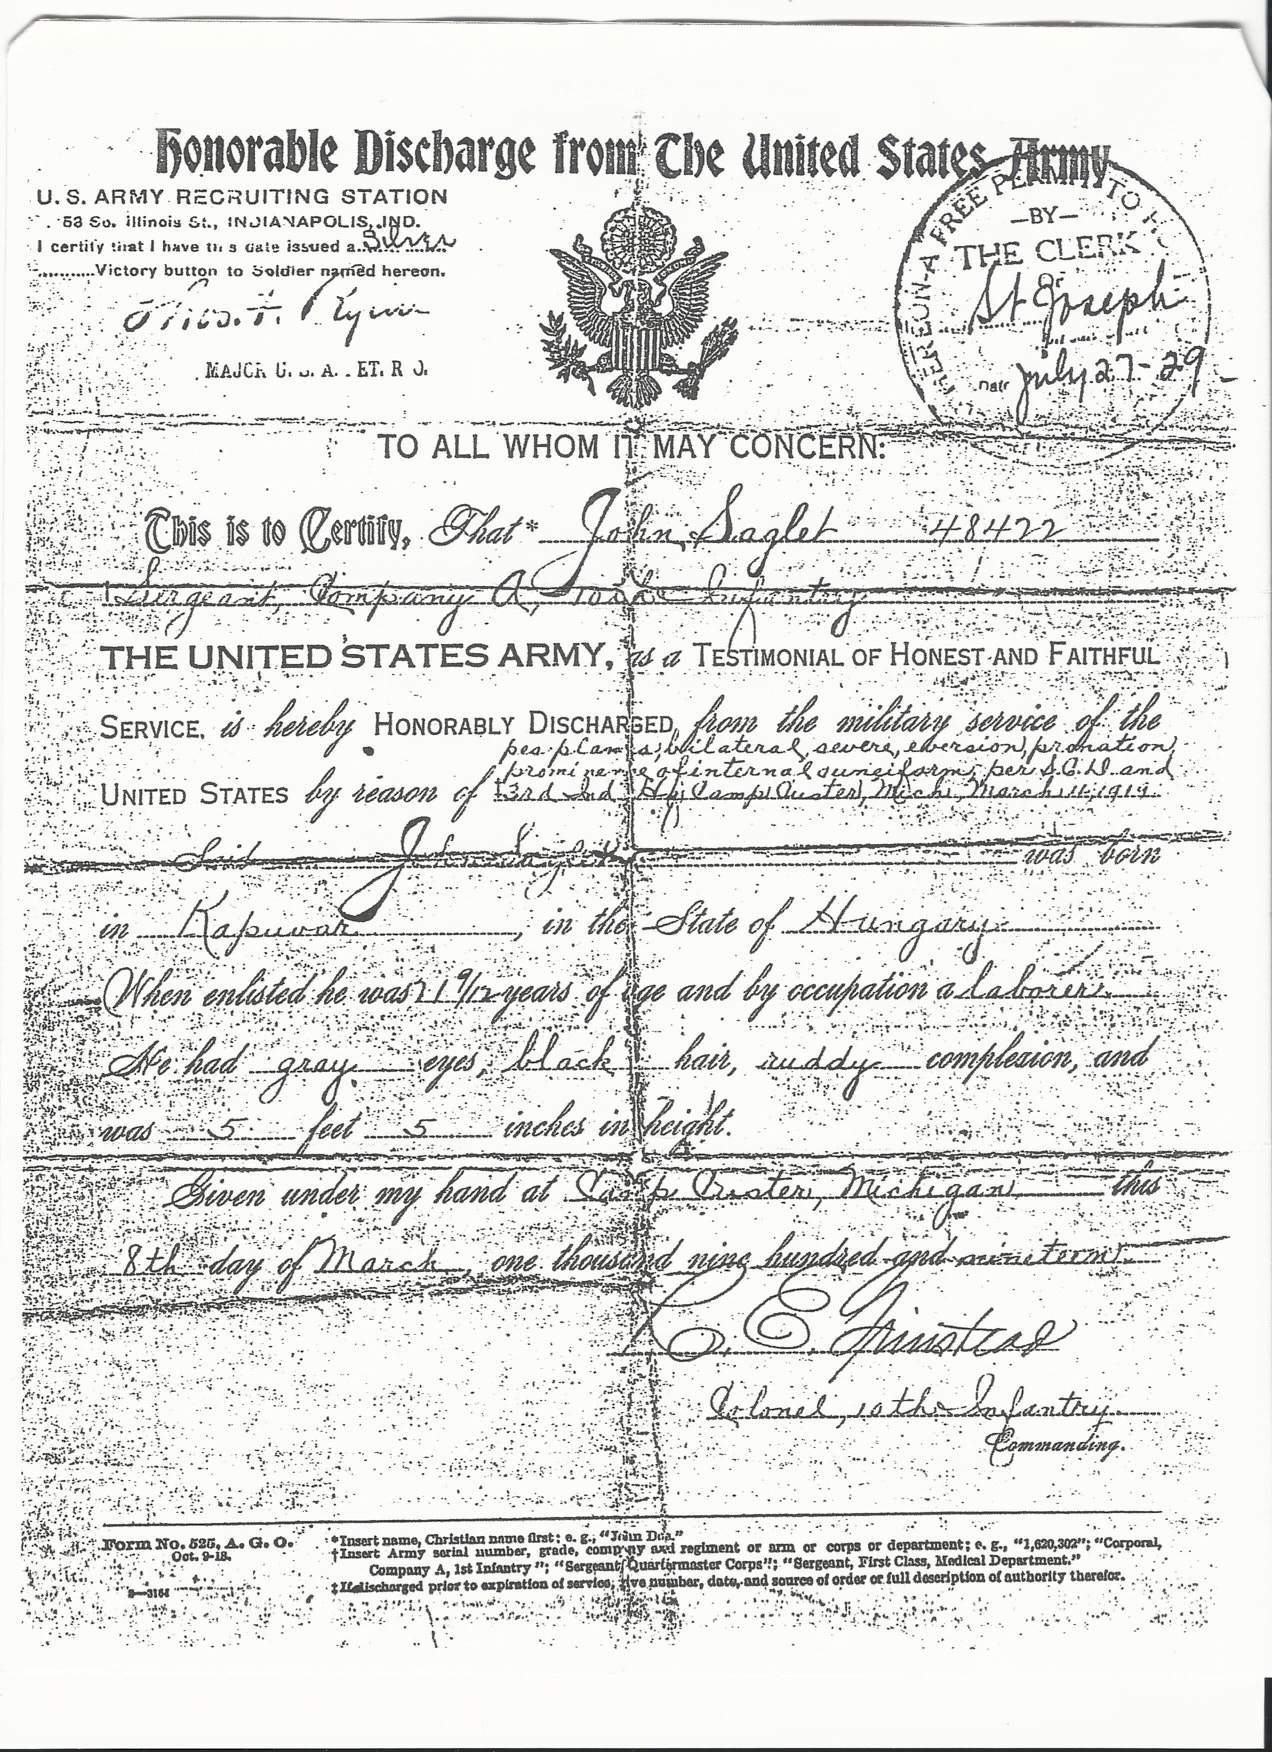 Honorable Discharge from The United States Army
U. S. ARMY RECRUITING STATION
53 So. Illinois St., INDIANAPOLIS, IND.
I certify that I have this date issued a Silver
Victory button to Soldier named hereon.
MAJOR U. S. A. RET. R O.
HEREON-A FREE PERMIT TO
—BY—
THE CLERK
OF
St Joseph
Date July 27-29
TO ALL WHOM IT MAY CONCERN:
This is to Certify, That* John Saglet 48422
Sergeant, Company A, 10th Infantry
THE UNITED STATES ARMY, as a TESTIMONIAL OF HONEST AND FAITHFUL
SERVICE, is hereby HONORABLY DISCHARGED from the military service of the
pes planus, bilateral, severe, eversion, pronation,
prominence of internal cuneiform; per S.C.D. and
UNITED STATES by reason of ‡3rd Ind Hq. Camp Custer, Mich., March 11, 1919
Said John Saglet was born
in Kapuvar, in the State of Hungary
When enlisted he was 21 9/12 years of age and by occupation a laborer.
He had gray eyes, black hair, ruddy complexion, and
was 5 feet 5 inches in height.
Given under my hand at Camp Custer, Michigan this
8th day of March, one thousand nine hundred and nineteen.
Colonel, 10th Infantry
Commanding.
Form No. 525, A. G. O.
Oct. 9-18.
3—3164
*Insert name, Christian name first; e. g., "John Doe."
†Insert Army serial number, grade, company and regiment or arm or corps or department; e. g., "1,620,302"; "Corporal,
Company A, 1st Infantry"; "Sergeant, Quartermaster Corps"; "Sergeant, First Class, Medical Department."
‡If discharged prior to expiration of service, give number, date, and source of order or full description of authority therefor.